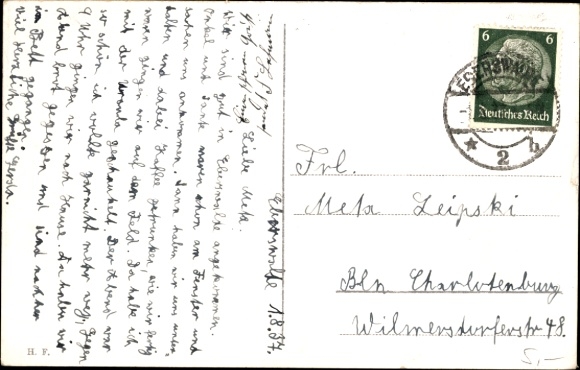 Eberswalde 1.8.37.
Liebe Meta.
Wir sind gut in Eberswalde angekommen.
Onkel und Tante waren schon am Fenster und
sahen uns ankommen. Dann haben wir uns unter-
halten und dabei Kaffee getrunken, wie wir fertig
waren gingen wir auf dem Feld. Da habe ich
mit der Ursula geschaukelt. Der Abend war
so schön, ich wollte garnicht mehr weg. Gegen
9 Uhr gingen wir nach Hause. Da haben wir
Abend brot gegessen und sind nachher
im Bett gegangen.
Viel Herzliche Grüße Gerda.
6 6
EBERSWALDE
Deutsches Reich
* 2 h
Frl.
Meta Leipski
Bln Charlottenburg
Wilmersdorferstr 48.
5,-
H. F.